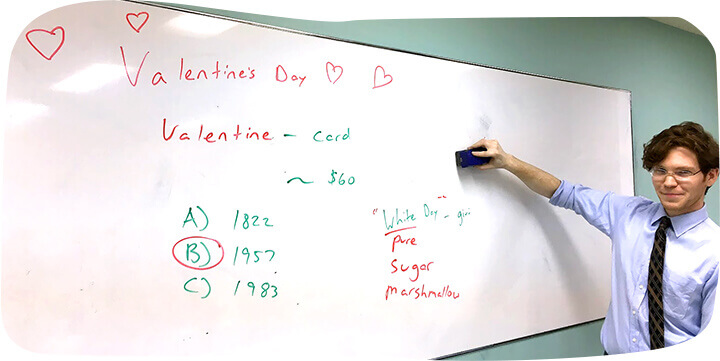 Valentine's Day
Valentine - card
~ $60
A) 1822
B) 1957
C) 1983
"White Day" - giri
pure
sugar
marshmallow